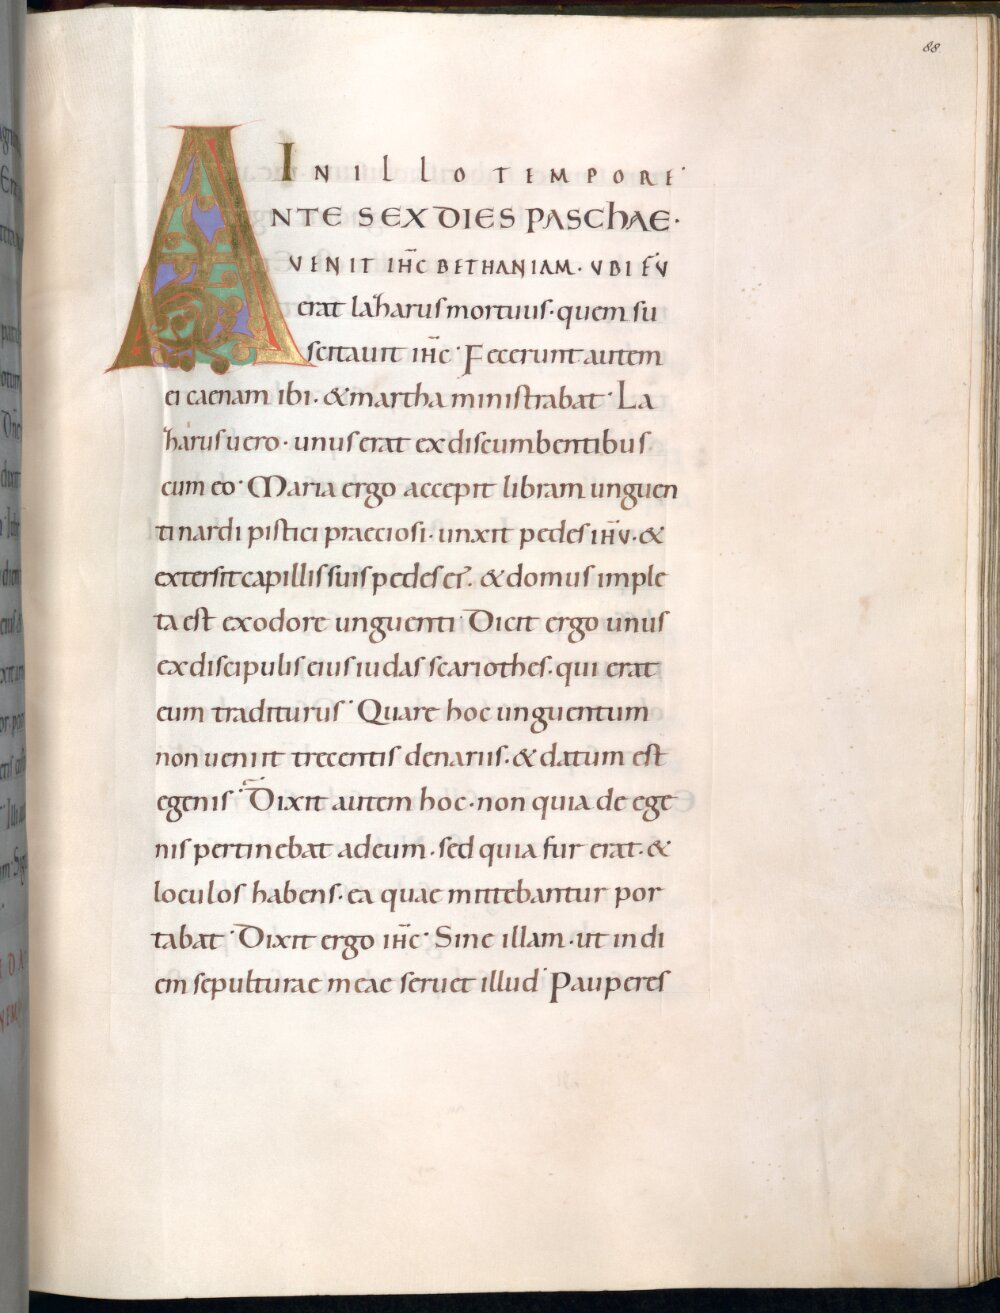 88
IN ILLO TEMPORE·
ANTE SEX DIES PASCHAE·
VENIT IHC̄ BETHANIAM· VBI FV̄
erat lazharus mortuus· quem su
scitauit ihc̄· Fecerunt autem
ei caenam ibi· & martha ministrabat· La
zharus uero· unus erat ex discumbentibus
cum eo· Maria ergo accepit libram unguen
ti nardi pistici praeciosi· unxit pedes ihū· &
extersit capillis suis pedes ei᷒· & domus imple
ta est ex odore unguenti· Dicit ergo unus
ex discipulis eius iudas scariothes· qui erat
eum traditurus· Quare hoc unguentum
non ueniit trecentis denariis· & datum est
egenis· Dixit autem hoc· non quia de ege
nis pertinebat ad eum· sed quia fur erat· &
loculos habens· ea quae mittebantur por
tabat· Dixit ergo ihc̄· Sine illam· ut in di
em sepulturae meae seruet illud· Pauperes